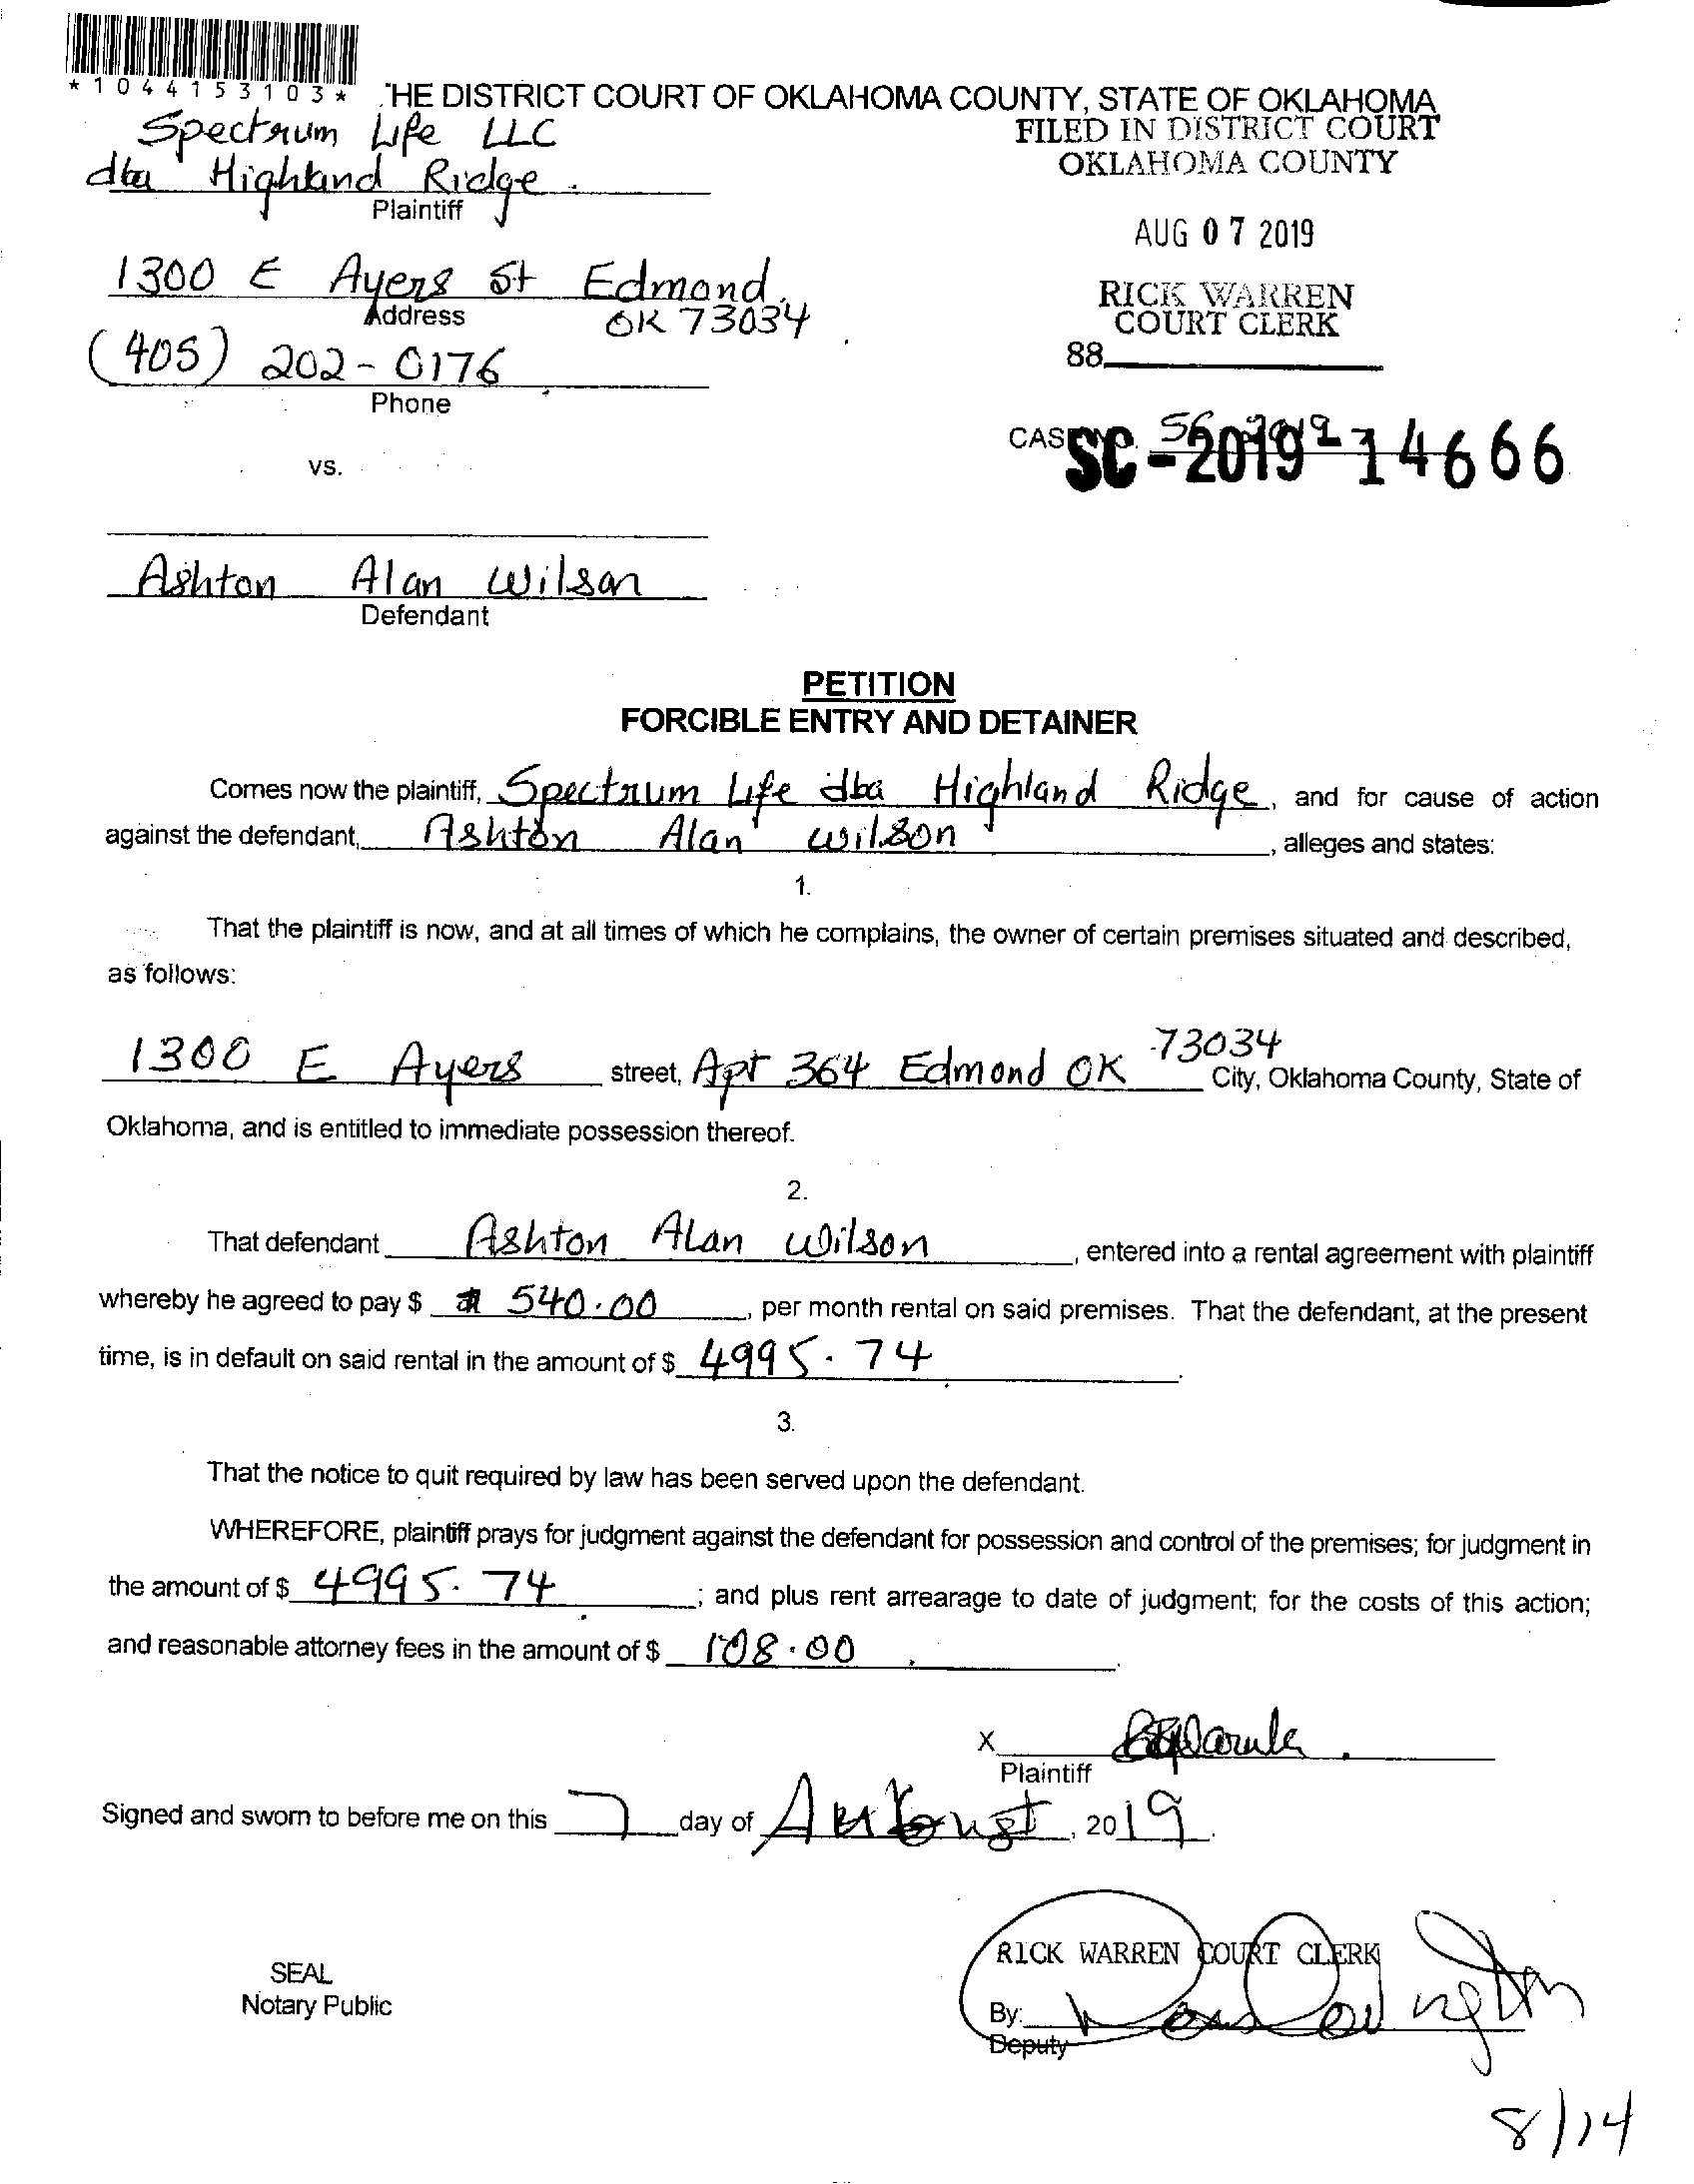 *1044153103*
THE DISTRICT COURT OF OKLAHOMA COUNTY, STATE OF OKLAHOMA
Spectrum Life LLC
dba Highland Ridge
Plaintiff
FILED IN DISTRICT COURT
OKLAHOMA COUNTY
AUG 07 2019
RICK WARREN
COURT CLERK
88
1300 E Ayers St Edmond,
Address
OK 73034
(405) 202-0176
Phone
CASE NO. SC-2019-14666
vs.
Ashton Alan Wilson
Defendant
PETITION
FORCIBLE ENTRY AND DETAINER
Comes now the plaintiff, Spectrum Life dba Highland Ridge, and for cause of action
against the defendant, Ashton Alan Wilson, alleges and states:
1.
That the plaintiff is now, and at all times of which he complains, the owner of certain premises situated and described,
as follows:
1300 E Ayers street, Apt 364 Edmond OK 73034 City, Oklahoma County, State of
Oklahoma, and is entitled to immediate possession thereof.
2.
That defendant Ashton Alan Wilson, entered into a rental agreement with plaintiff
whereby he agreed to pay $ 540.00, per month rental on said premises. That the defendant, at the present
time, is in default on said rental in the amount of $ 4995.74.
3.
That the notice to quit required by law has been served upon the defendant.
WHEREFORE, plaintiff prays for judgment against the defendant for possession and control of the premises; for judgment in
the amount of $ 4995.74; and plus rent arrearage to date of judgment; for the costs of this action;
and reasonable attorney fees in the amount of $ 108.00.
X
Plaintiff
Signed and sworn to before me on this 7 day of August, 2019.
SEAL
Notary Public
RICK WARREN COURT CLERK
By:
Deputy
8/14